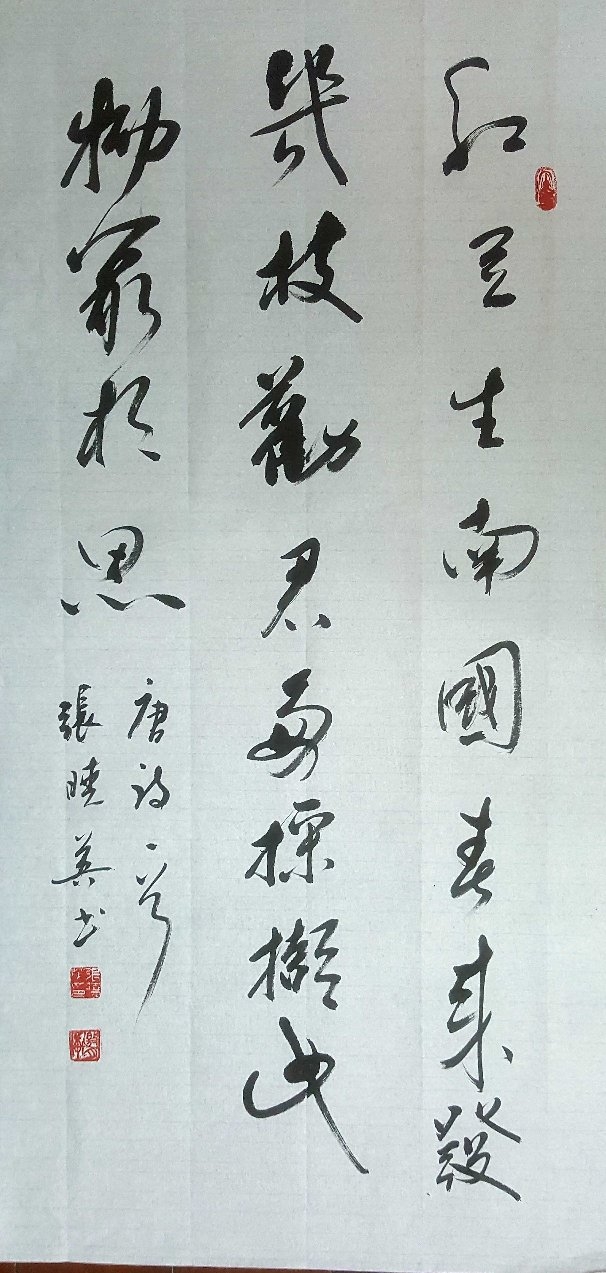 紅豆生南國春來發
幾枝勸君多採擷此
物最相思
唐詩一首
張曉英書